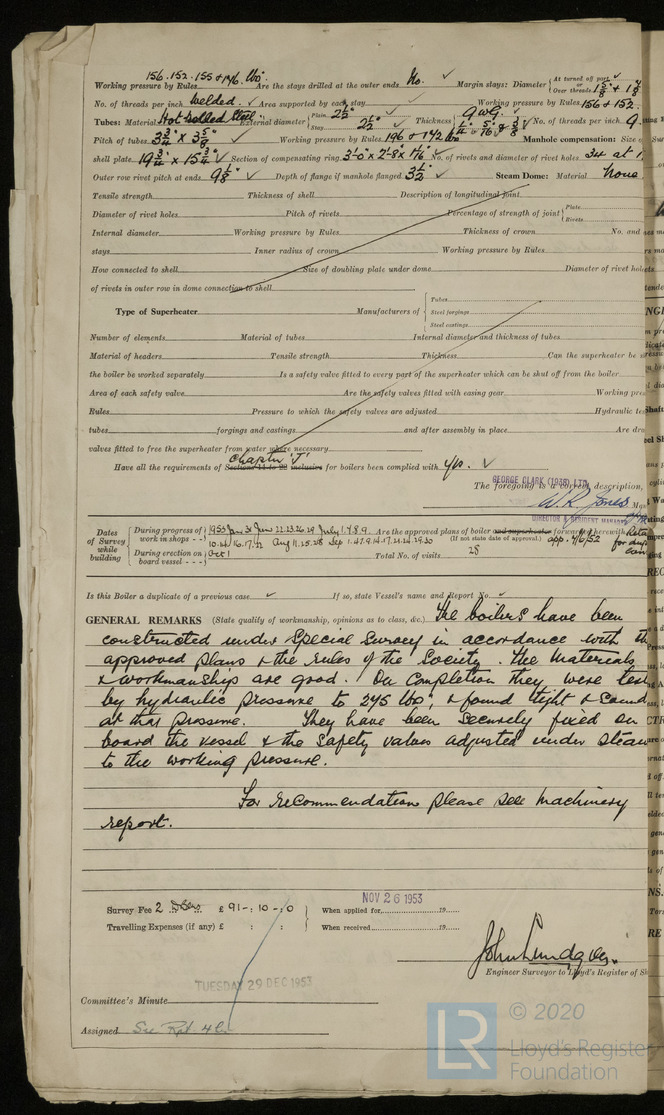 156.152.155 & 176. lbs.
Working pressure by Rules Are the stays drilled at the outer ends No. ✓ Margin stays: Diameter { At turned off part ✓ or Over threads 1 5/8 + 1
No. of threads per inch Welded. ✓ Area supported by each stay Working pressure by Rules 156 & 152.
Tubes: Material Hot Rolled Steel External diameter { Plain 2 1/2" Stay 2 1/2" ✓ Thickness { 9 WG. 1/4" 5/16" & 3/8 ✓ No. of threads per inch 9
Pitch of tubes 3 3/4" x 3 5/8" ✓ Working pressure by Rules 196 & 142 lbs Manhole compensation: Size
shell plate 19 3/4" x 15 3/4" ✓ Section of compensating ring 3'-0" x 2'-8" x 1 7/16 ✓ No. of rivets and diameter of rivet holes 34 at 1
Outer row rivet pitch at ends 9 1/8" ✓ Depth of flange if manhole flanged 3 1/2" ✓ Steam Dome: Material None
Tensile strength Thickness of shell Description of longitudinal joint
Diameter of rivet holes Pitch of rivets Percentage of strength of joint { Plate Rivets
Internal diameter Working pressure by Rules Thickness of crown No. and
stays Inner radius of crown Working pressure by Rules
How connected to shell Size of doubling plate under dome Diameter of rivet hol
of rivets in outer row in dome connection to shell
Type of Superheater Manufacturers of { Tubes Steel forgings Steel castings
Number of elements Material of tubes Internal diameter and thickness of tubes
Material of headers Tensile strength Thickness Can the superheater be
the boiler be worked separately Is a safety valve fitted to every part of the superheater which can be shut off from the boiler
Area of each safety valve Are the safety valves fitted with easing gear Working pre
Rules Pressure to which the safety valves are adjusted Hydraulic te
tubes forgings and castings and after assembly in place Are dra
valves fitted to free the superheater from water where necessary
Chapter 'J'
Have all the requirements of for boilers been complied with Yes. ✓
GEORGE CLARK (1938) LTD.
The foregoing is a correct description,
W.R. Jones
DIRECTOR & RESIDENT MANAGER
Dates of Survey while building
During progress of work in shops - - 1953 Jan 31 Jun 22.23.26.29 July 1.7.8.9. Are the approved plans of boiler and superheater forwarded herewith
10.14.16.17.22 Aug 11.25.28 Sep 1.4.7.9.14.17.21.24.29.30 (If not state date of approval.) app. 4/6/52
During erection on board vessel - - - Oct 1 Total No. of visits 28
Is this Boiler a duplicate of a previous case ✓ If so, state Vessel's name and Report No. ✓
GENERAL REMARKS (State quality of workmanship, opinions as to class, &c.) The boilers have been
constructed under Special Survey in accordance with th
approved plans & the rules of the Society. The materials
& workmanship are good. On completion they were test
by hydraulic pressure to 245 lbs", & found tight & sound
at that pressure. They have been securely fixed on
board the vessel & the safety valves adjusted under steam
to the working pressure.
For recommendation please see machinery
report.
Survey Fee 2 £ 91 - : 10 - : 0
When applied for NOV 26 1953 19
Travelling Expenses (if any) £ : :
When received 19
John Lundgren.
Engineer Surveyor to Lloyd's Register of S
TUESDAY 29 DEC 1953
Committee's Minute
Assigned See Rpt 4
LR
© 2020
Lloyd's Register
Foundation